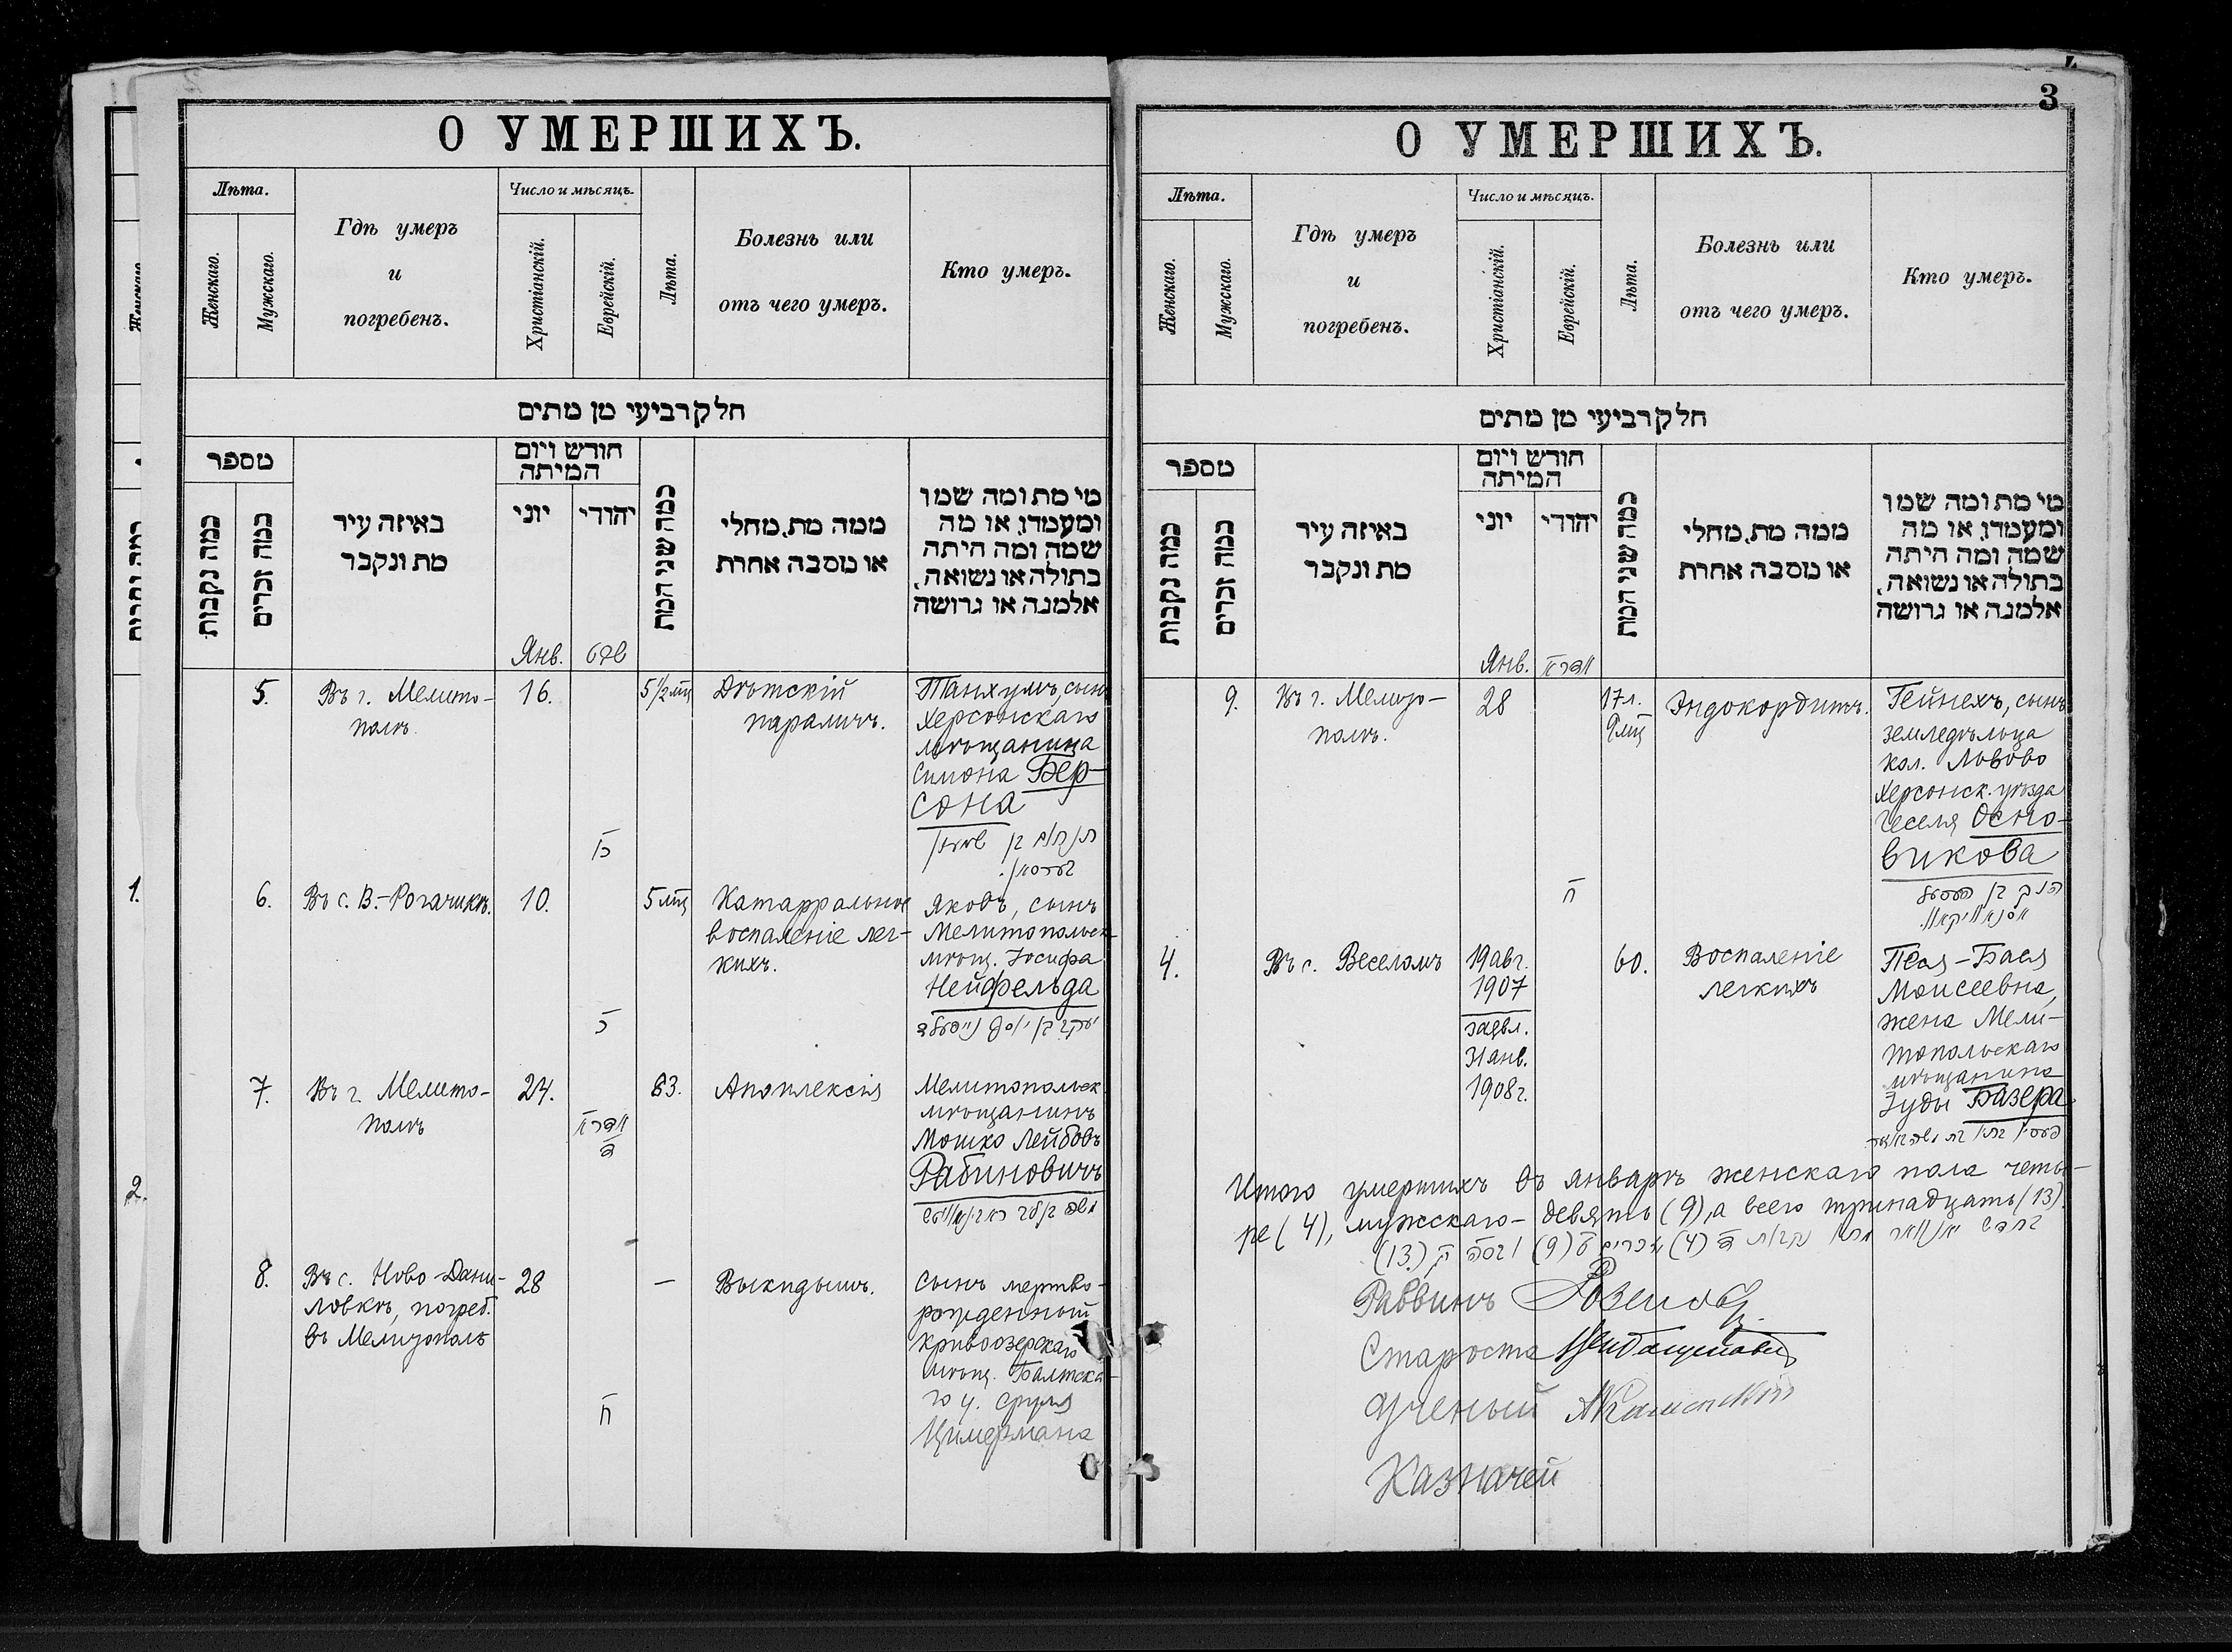 О УМЕРШИХЪ.
Лѣта.
Женскаго.
Мужскаго.
Гдѣ умеръ
и
погребенъ.
Число и мѣсяцъ.
Христіанскій.
Еврейскій.
Лѣта.
Болезнь или
отъ чего умеръ.
Кто умеръ.
חלק רביעי מן מתים
מספר
כמה נקבות
כמה זכרים
באיזה עיר
מת ונקבר
חודש ויום
המיתה
יוני
יהודי
כמה שני המת
ממה מת, מחלי
או מסבה אחרת
מי מת ומה שמו
ומעמדו, או מה
שמה ומה היתה
בתולה או נשואה,
אלמנה או גרושה
Янв.
שבט
5.
Въ г. Мелито-
полѣ
16.
יג
5 1/2 мц
Дѣтскій
параличъ.
Танхумъ, сынъ
Херсонскаго
мѣщанина
Симона Бер-
сона
תנחום בן שמעון
בערסאן.
6.
Въ с. В.-Рогачикѣ.
10.
ז
5 мц
Катарральное
воспаленіе лег-
кихъ.
Яковъ, сынъ
Мелитопольск
мѣщ. Іосифа
Нейфельда
יעקב בן יוסף נייפעלד
7.
Въ г. Мелито-
полѣ
24.
אדר א
ד
83.
Апоплексія
Мелитопольск
мѣщанинъ
Мошко Лейбовъ
Рабиновичъ
משה בן ליב ראבינאוויטש
8.
Въ с. Ново-Дани-
ловкѣ, погреб.
въ Мелитополѣ
28
ח
—
Выкидышъ.
Сынъ мертво-
рожденный
Кривоозерскаго
мѣщ. Балтска-
го у. Сруля
Цимермана
1.
2.
3
О УМЕРШИХЪ.
Лѣта.
Женскаго.
Мужскаго.
Гдѣ умеръ
и
погребенъ.
Число и мѣсяцъ.
Христіанскій.
Еврейскій.
Лѣта.
Болезнь или
отъ чего умеръ.
Кто умеръ.
חלק רביעי מן מתים
מספר
כמה נקבות
כמה זכרים
באיזה עיר
מת ונקבר
חודש ויום
המיתה
יוני
יהודי
כמה שני המת
ממה מת, מחלי
או מסבה אחרת
מי מת ומה שמו
ומעמדו, או מה
שמה ומה היתה
בתולה או נשואה,
אלמנה או גרושה
Янв.
אדר א
9.
Въ г. Мелито-
полѣ.
28
ח
17 л.
9 мц
Эндокордитъ.
Гейнехъ, сынъ
земледѣльца
кол. Львово
Херсонск. уѣзда
Геселя Осно-
викова
4.
Въ с. Веселомъ
19 авг.
1907
заявл.
31 янв.
1908 г.
60.
Воспаленіе
легкихъ
Песя-Бася
Моисеевна,
жена Мели-
топольскаго
мѣщанина
Іуды Базера
Итого умершихъ въ январѣ женскаго пола четы-
ре (4), мужскаго - девять (9), а всего тринадцать (13).
Раввинъ
Староста
Ученый АКаменскій
Казначей